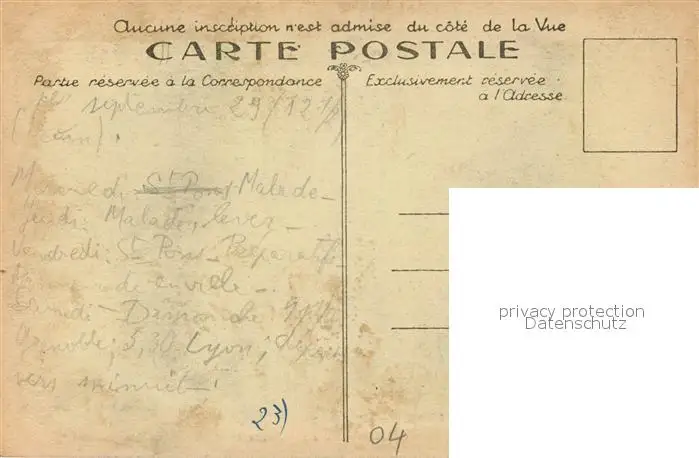 Aucune inscription n'est admise du côté de la Vue
CARTE POSTALE
Partie réservée à la Correspondance
Exclusivement réservée
à l'Adresse
septembre 29
St Pons Malade
Jeudi: Malade, levez
Vendredi: St Pons
en ville
Samedi Dimanche
5,30 Lyon;
vers minuit
23)
04
privacy protection
Datenschutz